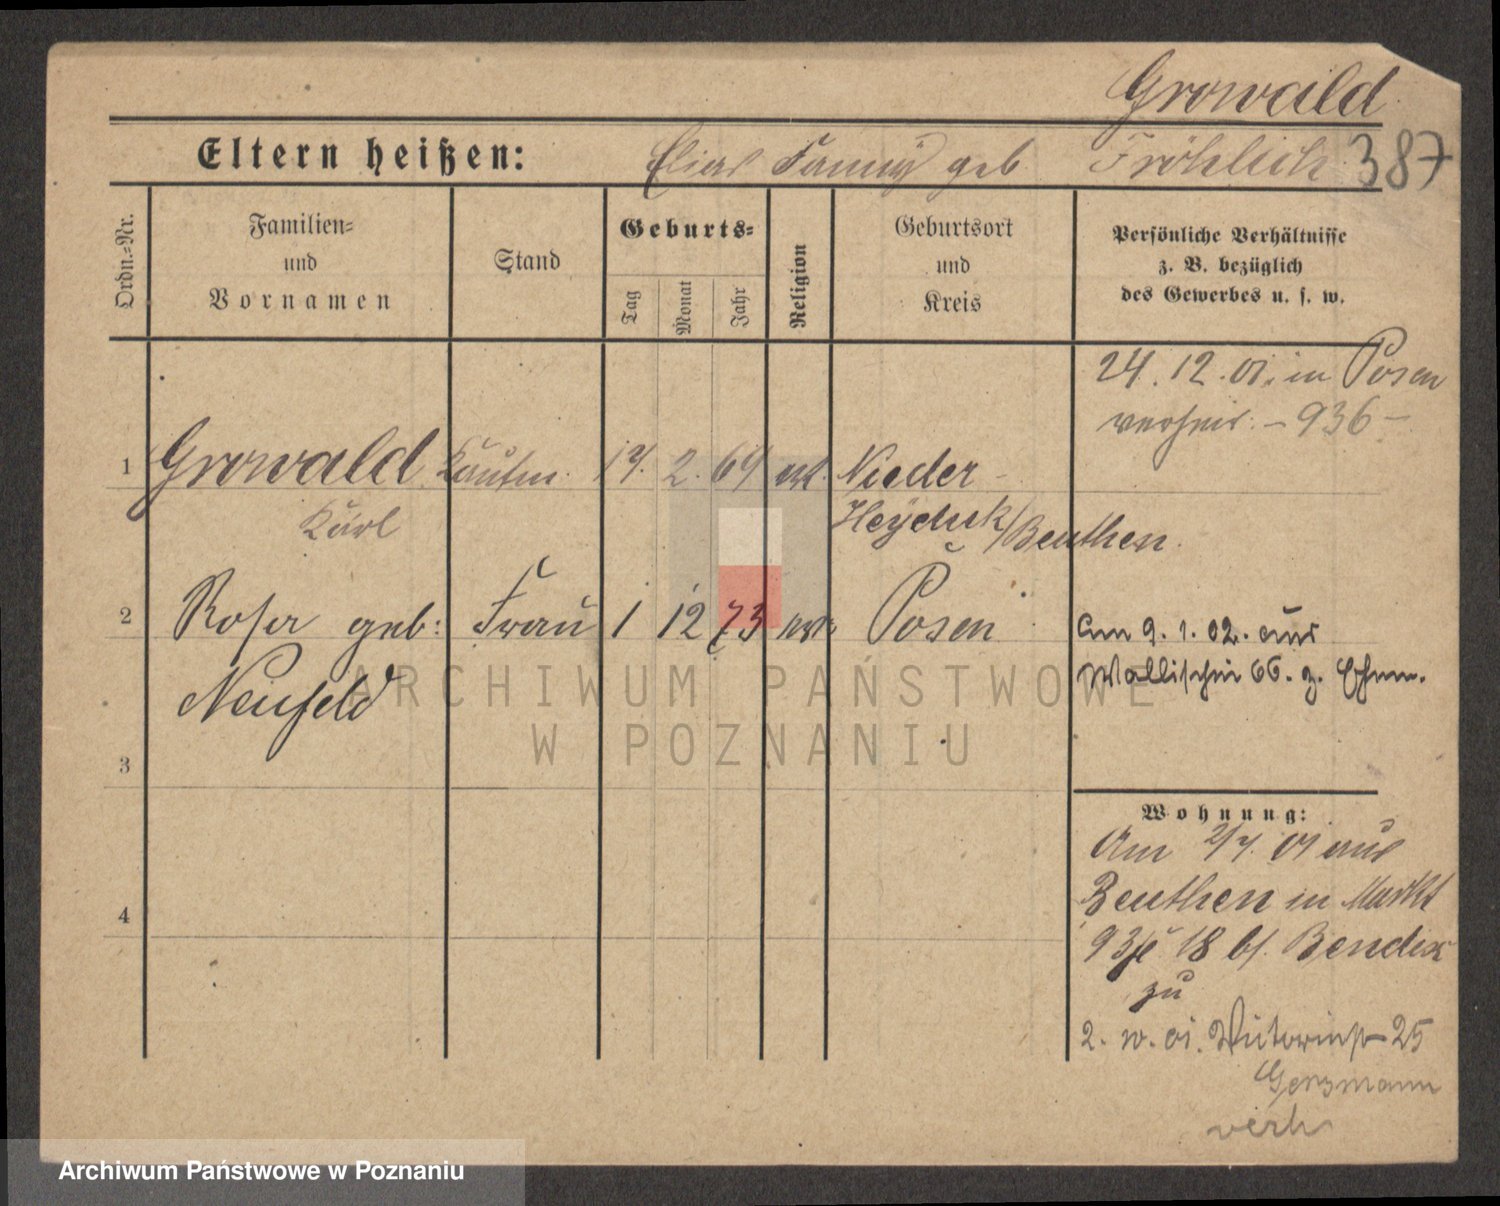 Growald
Eltern heißen: Elias Fanny geb Fröhlich 387
Ordn.-Nr.
Familien-
und
Vornamen
Stand
Geburts-
Tag
Monat
Jahr
Religion
Geburtsort
und
Kreis
Persönliche Verhältnisse
z. B. bezüglich
des Gewerbes u. s. w.
24. 12. 01. in Posen
verheir. - 936 -
1 Growald Kaufm. 17. 2. 69 Nieder-
Karl Heyduk/Beuthen.
2 Rosa geb: Frau 1 12 73 Posen
Neufeld
Am 9. 1. 02. aus
Wallischei 66. z. Ehem.
3
Wohnung:
Am 2/7. 01 aus
Beuthen in Markt
18 bs. Bendix
4
zu
2. 25
verh
ARCHIWUM PAŃSTWOWE
W POZNANIU
Archiwum Państwowe w Poznaniu